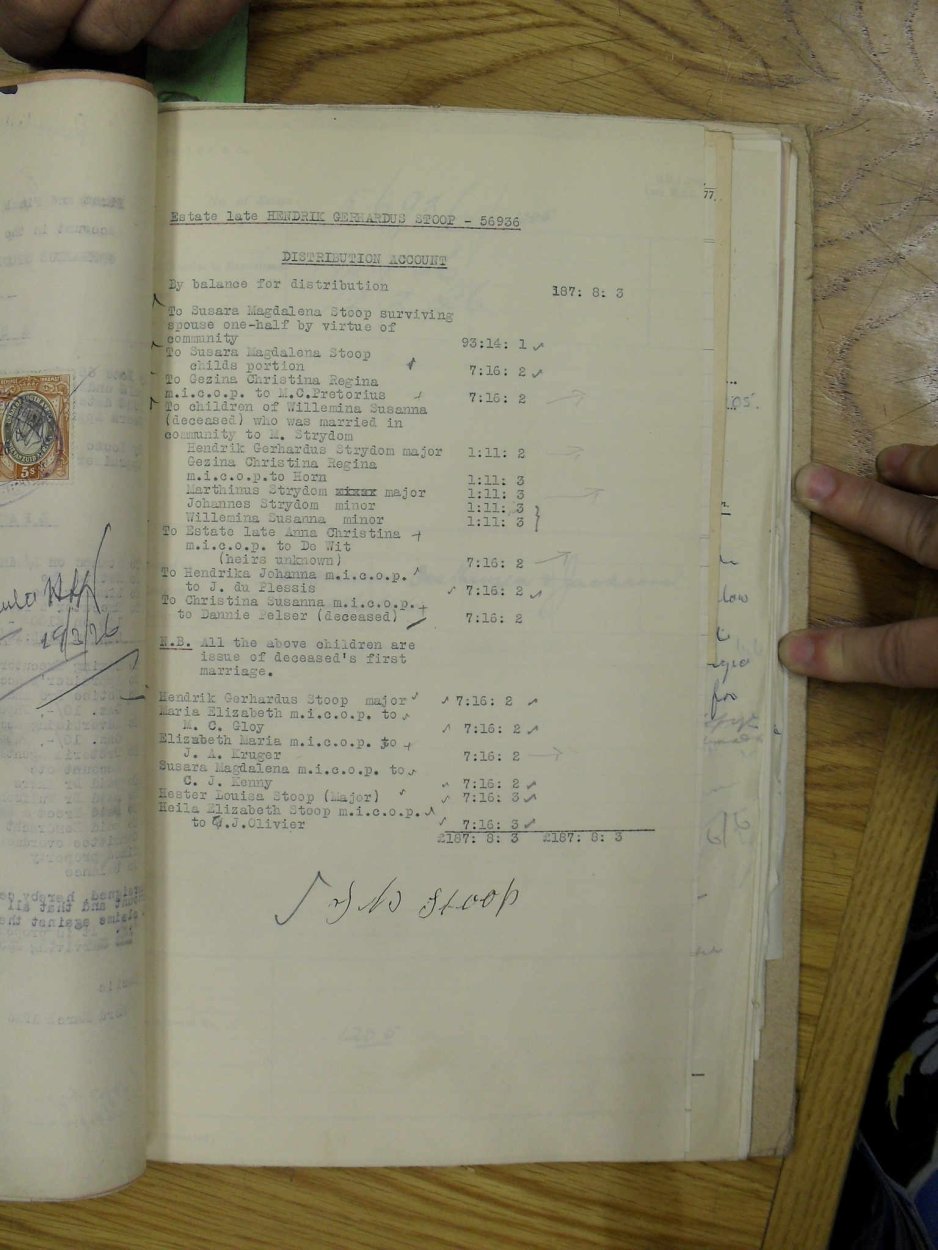 77.
Estate late HENDRIK GERHARDUS STOOP - 56936
DISTRIBUTION ACCOUNT
By balance for distribution 187: 8: 3
To Susara Magdalena Stoop surviving
spouse one-half by virtue of
community 93:14: 1
To Susara Magdalena Stoop
childs portion 7:16: 2
To Gezina Christina Regina
m.i.c.o.p. to M.C.Pretorius 7:16: 2
To children of Willemina Susanna
(deceased) who was married in
community to M. Strydom
Hendrik Gerhardus Strydom major 1:11: 2
Gezina Christina Regina
m.i.c.o.p.to Horn 1:11: 3
Marthinus Strydom major 1:11: 3
Johannes Strydom minor 1:11: 3
Willemina Susanna minor 1:11: 3
To Estate late Anna Christina
m.i.c.o.p. to De Wit
(heirs unknown) 7:16: 2
To Hendrika Johanna m.i.c.o.p.
to J. du Plessis 7:16: 2
To Christina Susanna m.i.c.o.p.
to Dannie Pelser (deceased) 7:16: 2
N.B. All the above children are
issue of deceased's first
marriage.
Hendrik Gerhardus Stoop major 7:16: 2
Maria Elizabeth m.i.c.o.p. to
M. C. Gloy 7:16: 2
Elizabeth Maria m.i.c.o.p. to
J. A. Kruger 7:16: 2
Susara Magdalena m.i.c.o.p. to
C. J. Kenny 7:16: 2
Hester Louisa Stoop (Major) 7:16: 3
Heila Elizabeth Stoop m.i.c.o.p.
to J.Olivier 7:16: 3
£187: 8: 3 £187: 8: 3
Stoop
19/3/26
5s